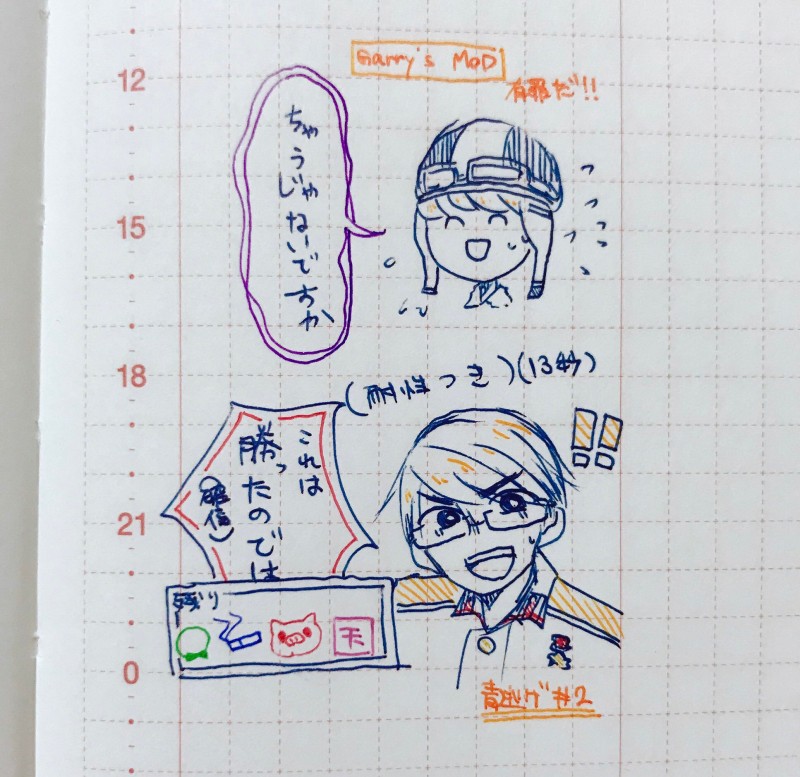 12
Garry's MOD
有罪だ!!
ちゃうじゃないですか
15
18
(耐性つき)(13秒)
これは
勝ったのでは
(確信)
!!
21
残り
天
0
青逃げ#2